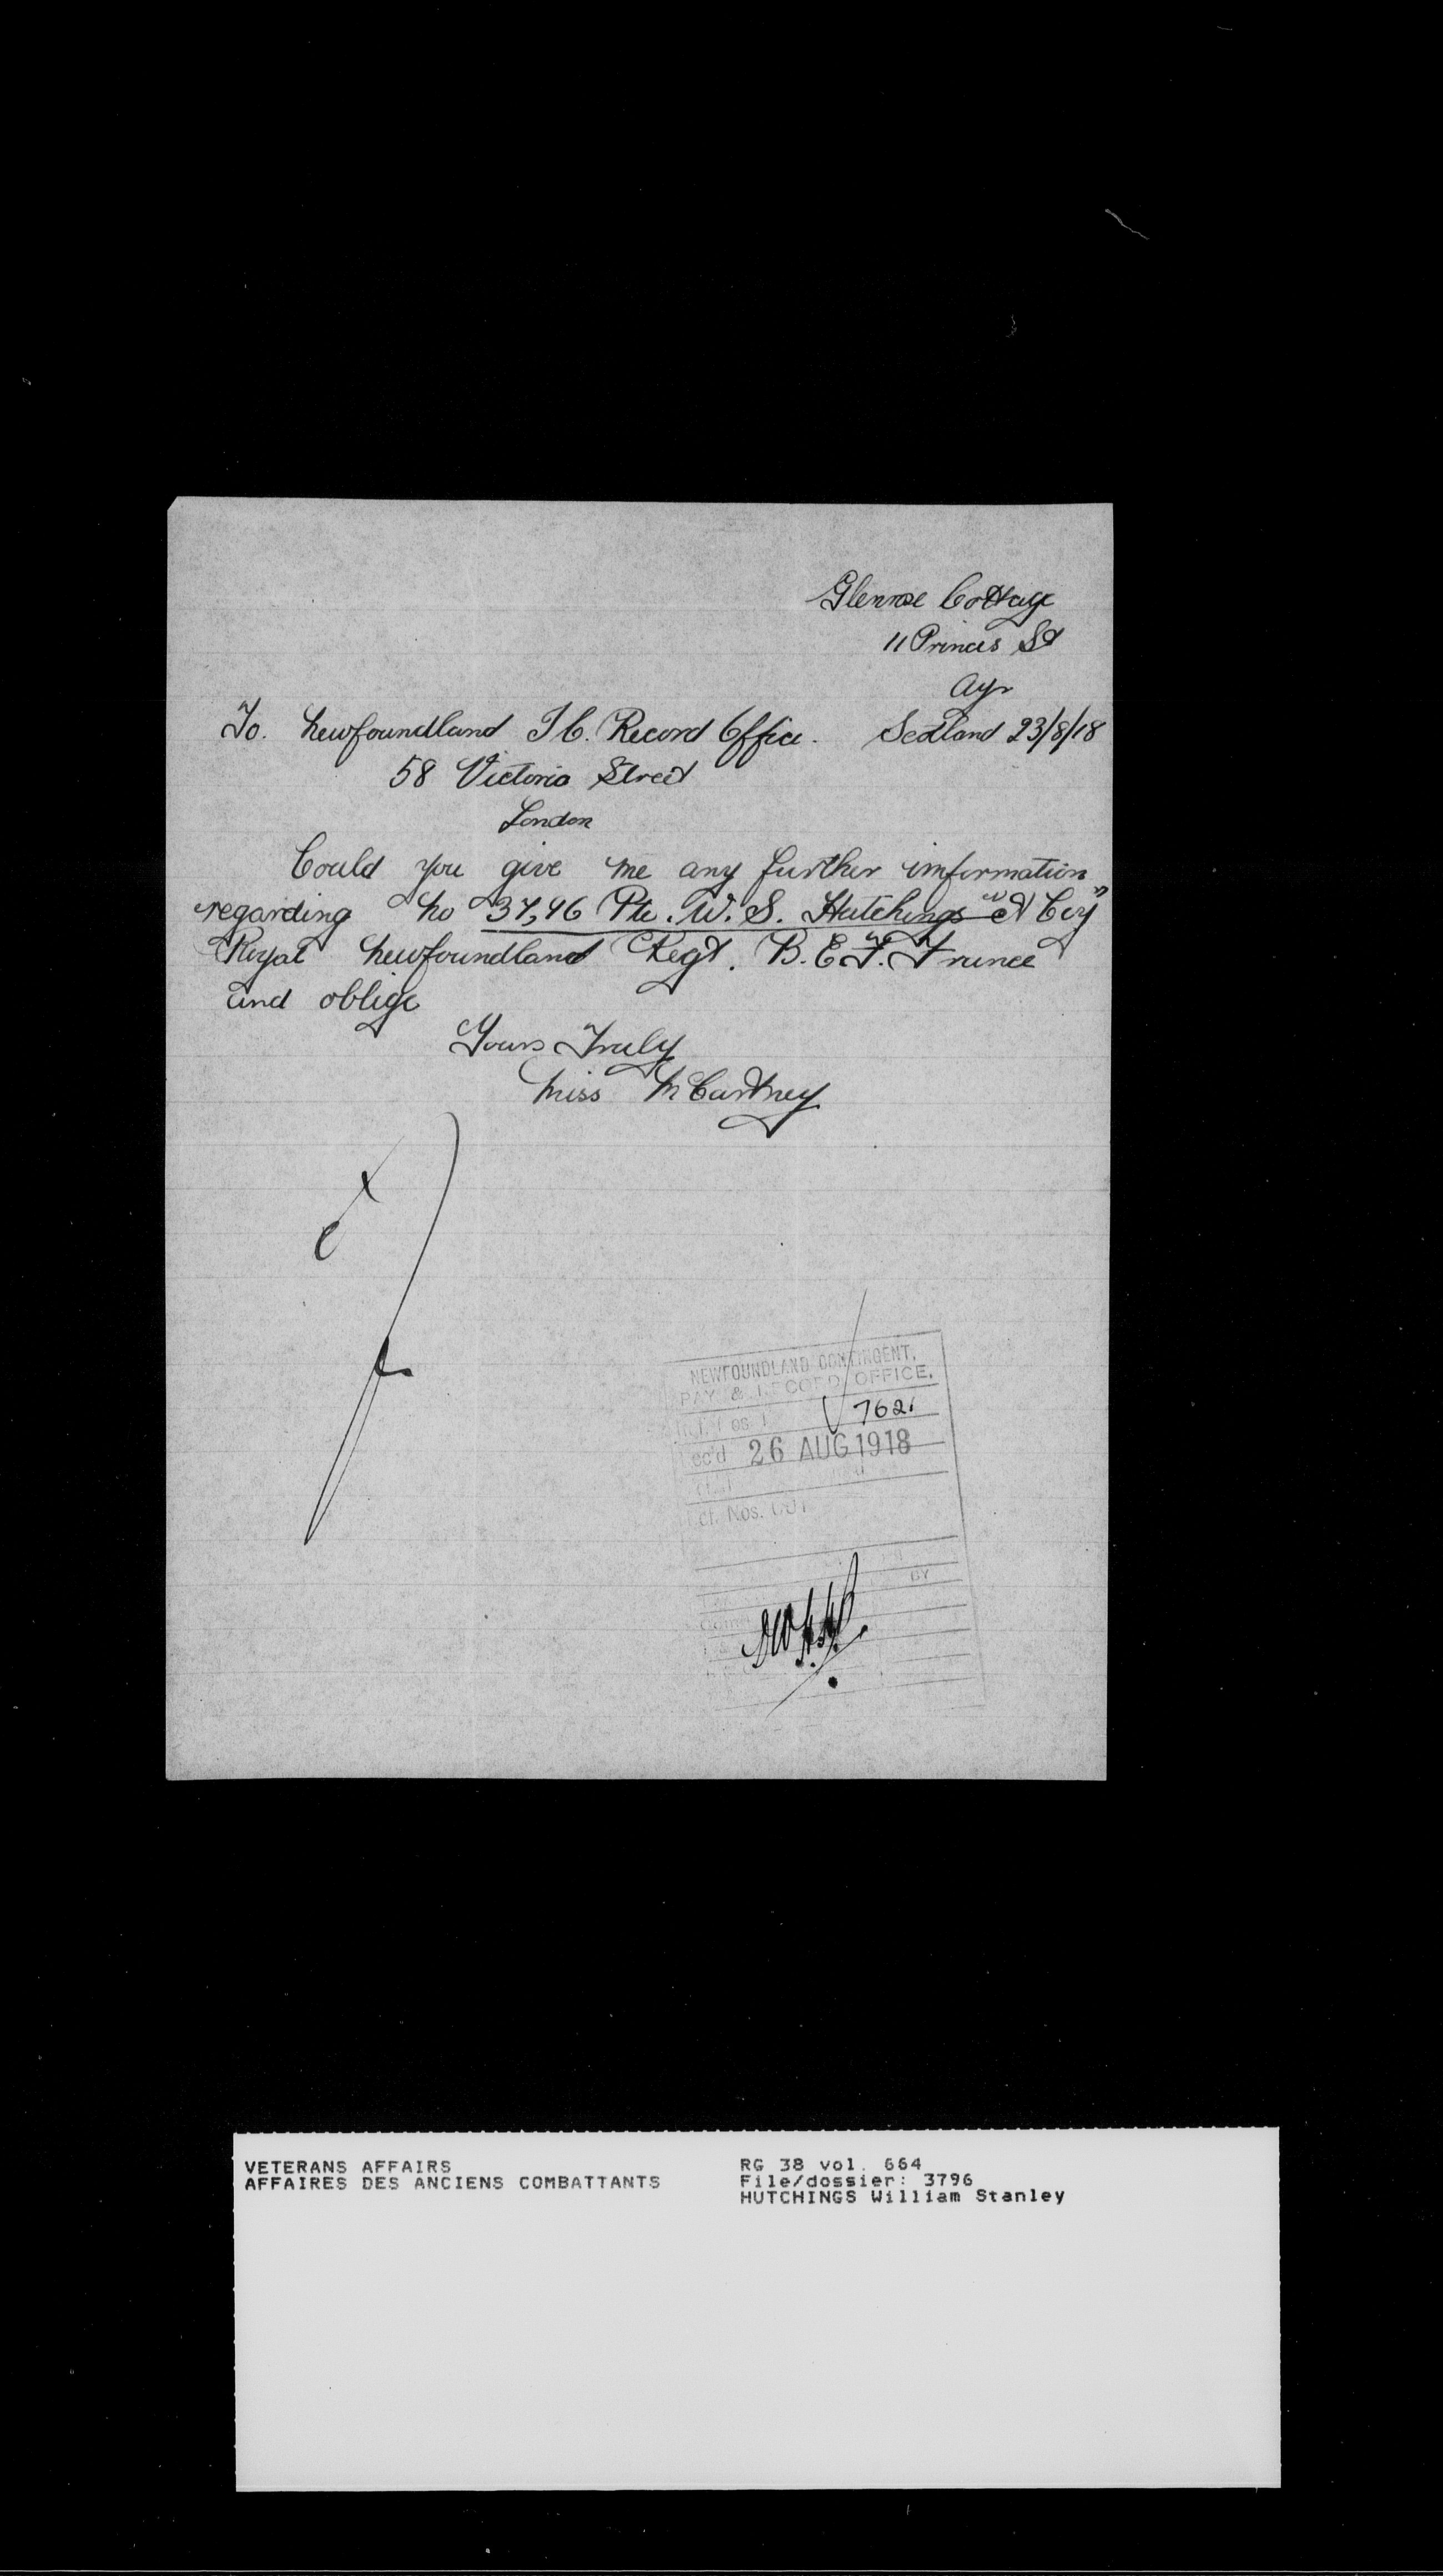 Glenrose Cottage
11 Princes St
Ayr
To. Newfoundland I C. Record Office. Scotland 23/8/18
58 Victoria Street
London
Could you give me any further imformation
regarding No 37,96 Pte. W. S. Hutchings "A Coy"
Royal Newfoundland Regt. B.E.F. France
and oblige
Yours Truly
Miss McCartney
NEWFOUNDLAND CONTINGENT.
PAY & RECORD OFFICE.
7621
Rec'd 26 AUG 1918
Nos.
BY
VETERANS AFFAIRS RG 38 vol. 664
AFFAIRES DES ANCIENS COMBATTANTS File/dossier: 3796
HUTCHINGS William Stanley